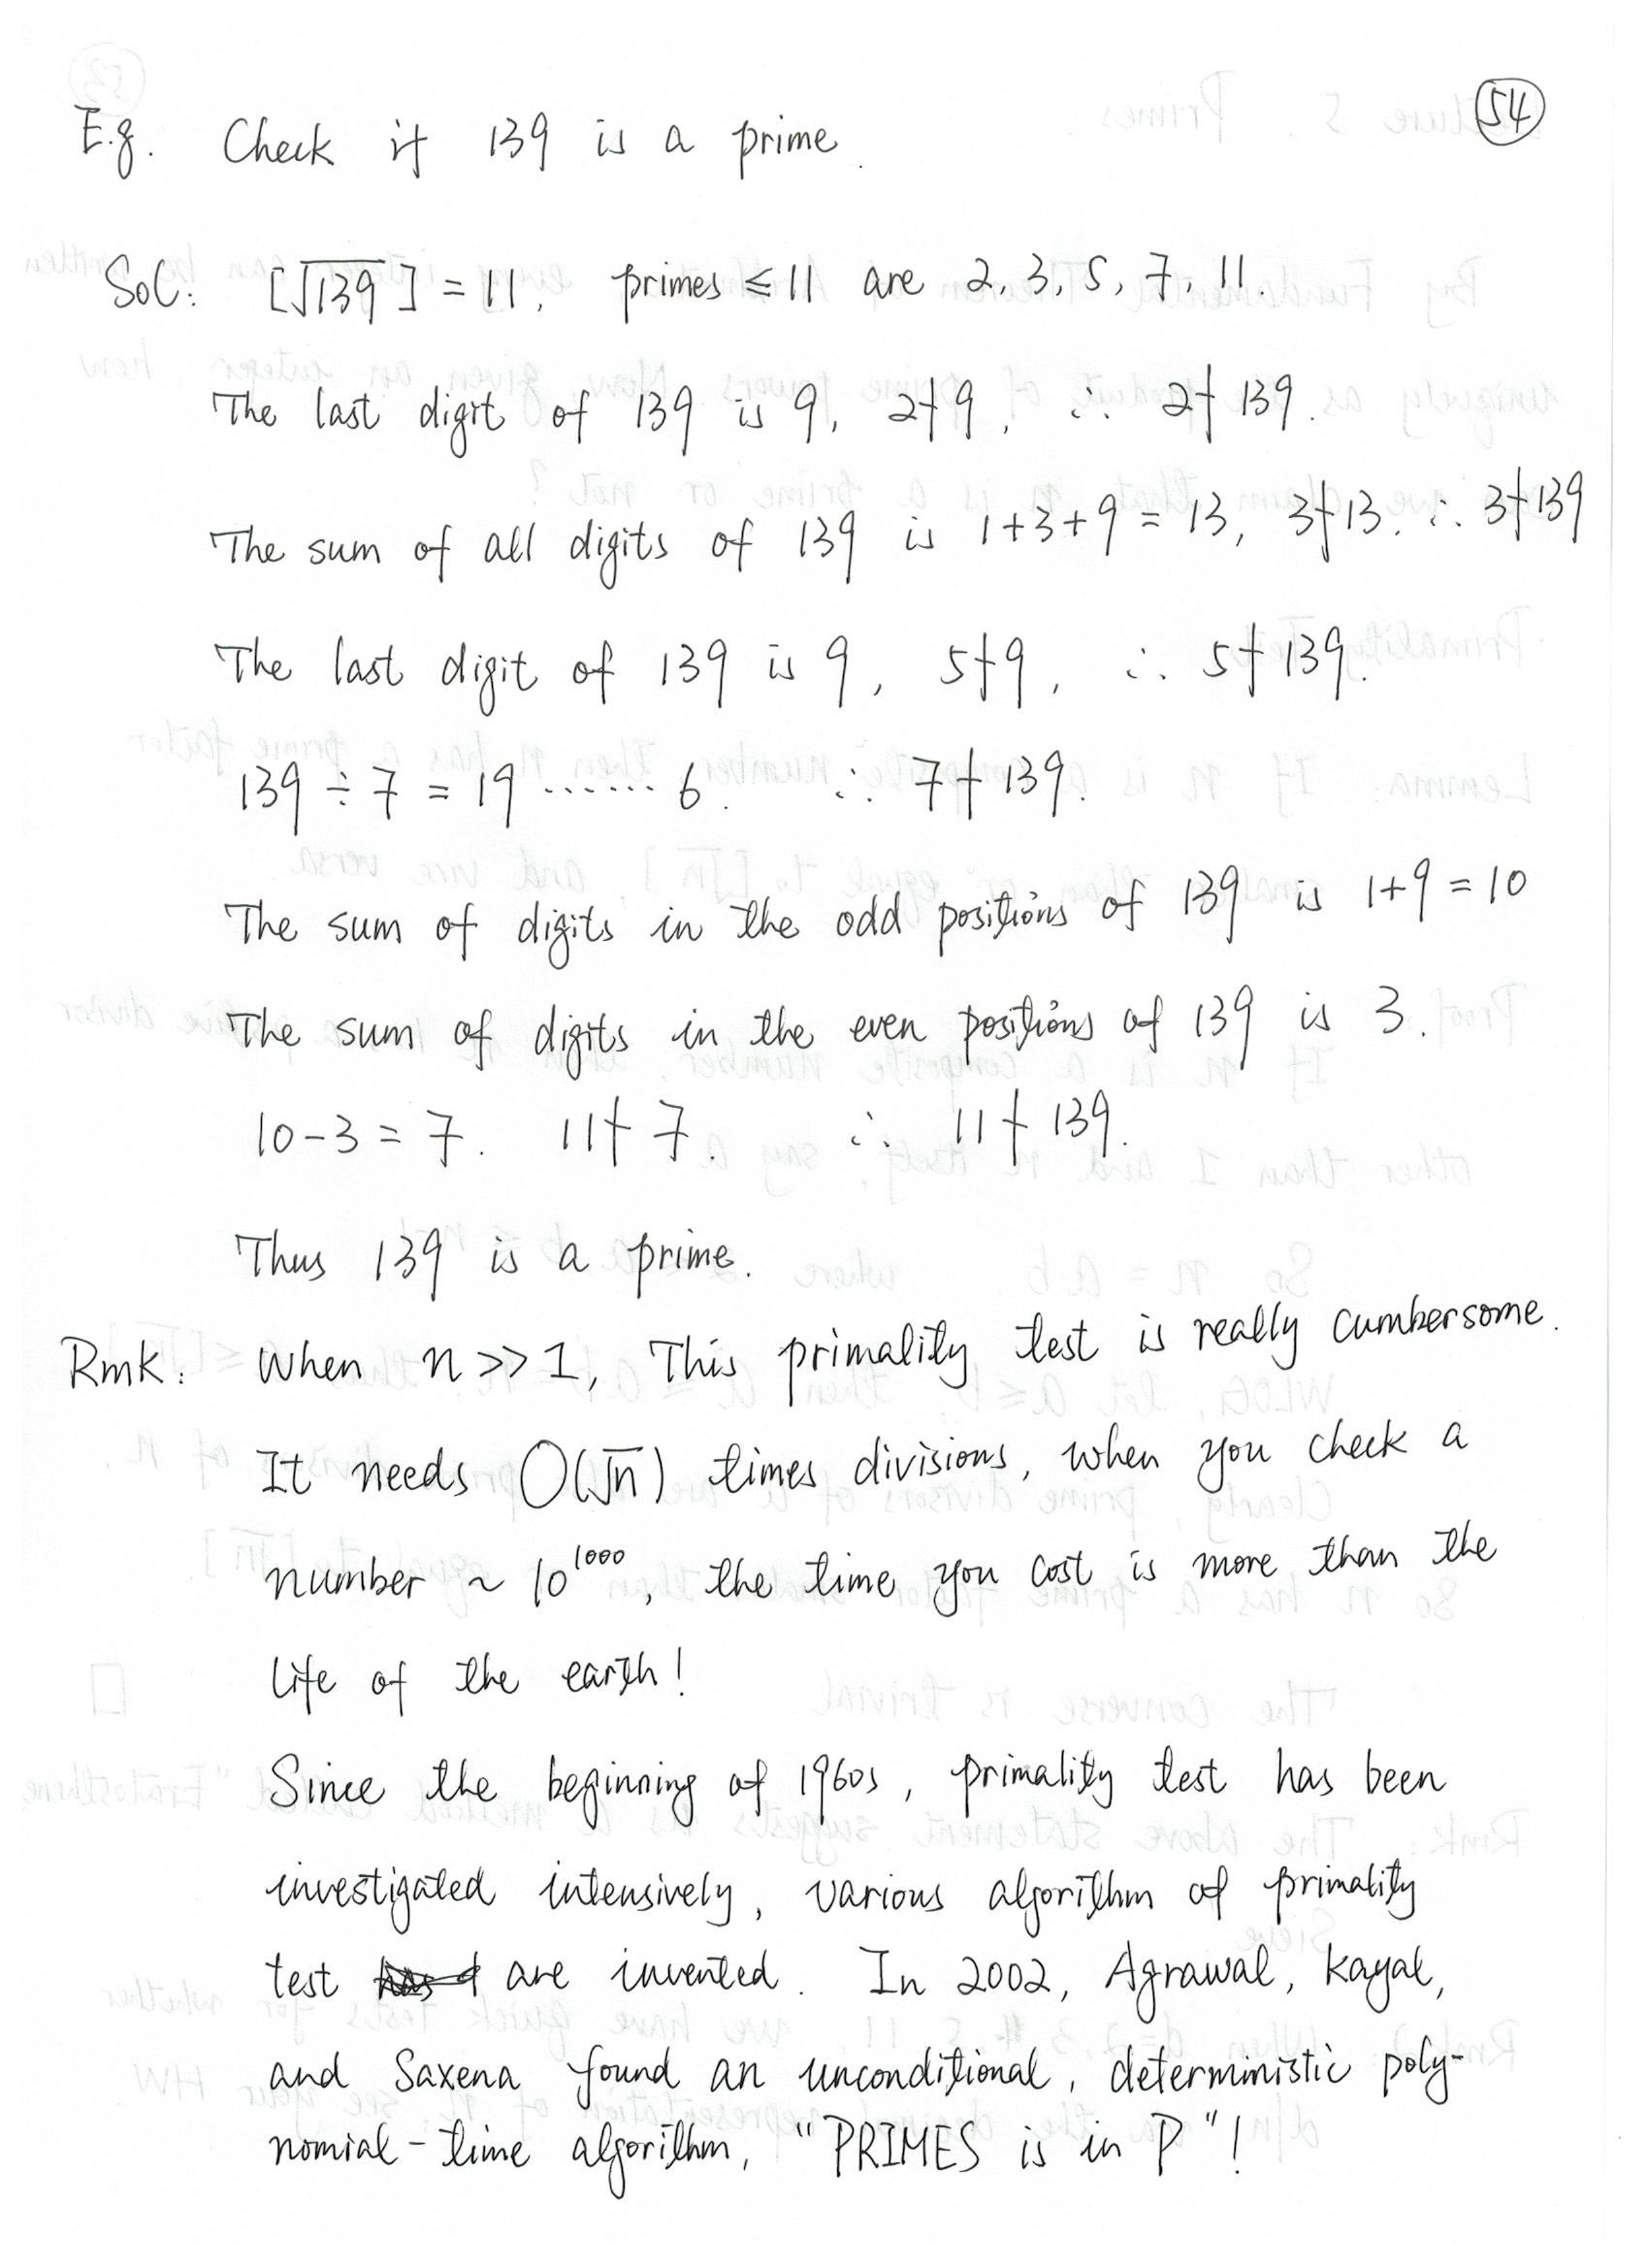 54
E.g. Check if 139 is a prime.
Sol: [√139] = 11, primes ≤ 11 are 2, 3, 5, 7, 11.
The last digit of 139 is 9, 2∤9, ∴ 2∤139.
The sum of all digits of 139 is 1+3+9 = 13, 3∤13. ∴ 3∤139
The last digit of 139 is 9, 5∤9, ∴ 5∤139.
139 ÷ 7 = 19 ...... 6. ∴ 7∤139.
The sum of digits in the odd positions of 139 is 1+9 = 10
The sum of digits in the even positions of 139 is 3.
10-3 = 7. 11∤7. ∴ 11∤139.
Thus 139 is a prime.
Rmk: When n >> 1, This primality test is really cumbersome.
It needs O(√n) times divisions, when you check a
number ~ 10^1000, the time you cost is more than the
life of the earth!
Since the beginning of 1960s, primality test has been
investigated intensively, various algorithm of primality
test are invented. In 2002, Agrawal, Kayal,
and Saxena found an unconditional, deterministic poly-
nomial-time algorithm, "PRIMES is in P"!